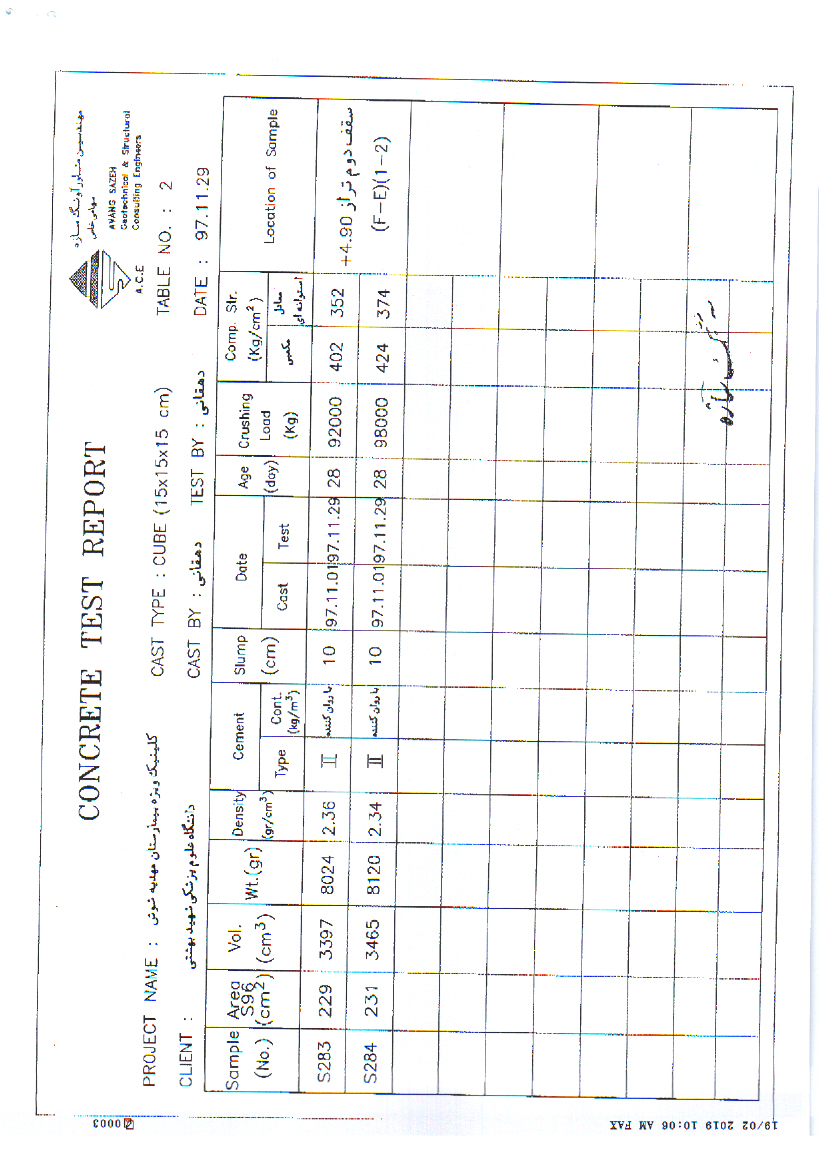 CONCRETE TEST REPORT
مهندسین مشاور آونگ سازه
سهامی خاص
AVANG SAZEH
Geotechnical & Structural
Consulting Engineers
A.C.E
PROJECT NAME : کلینیک ویژه بیمارستان مهدیه شوش CAST TYPE : CUBE (15x15x15 cm) TABLE NO. : 2
CLIENT : دانشگاه علوم پزشکی شهید بهشتی CAST BY : دهقانی TEST BY : دهقانی DATE : 97.11.29
Sample (No.) Area S96 (cm²) Vol. (cm³) Wt.(gr) Density (gr/cm³) Cement Type Cont. (kg/m³) Slump (cm) Date Cast Test Age (day) Crushing Load (Kg) Comp. Str. (Kg/cm²) مکعبی معادل استوانه ای Location of Sample
S283 229 3397 8024 2.36 II با روان کننده 10 97.11.01 97.11.29 28 92000 402 352 سقف دوم تراز +4.90
S284 231 3465 8120 2.34 II با روان کننده 10 97.11.01 97.11.29 28 98000 424 374 (F-E)(1-2)
0003
19/02 2019 10:06 AM FAX